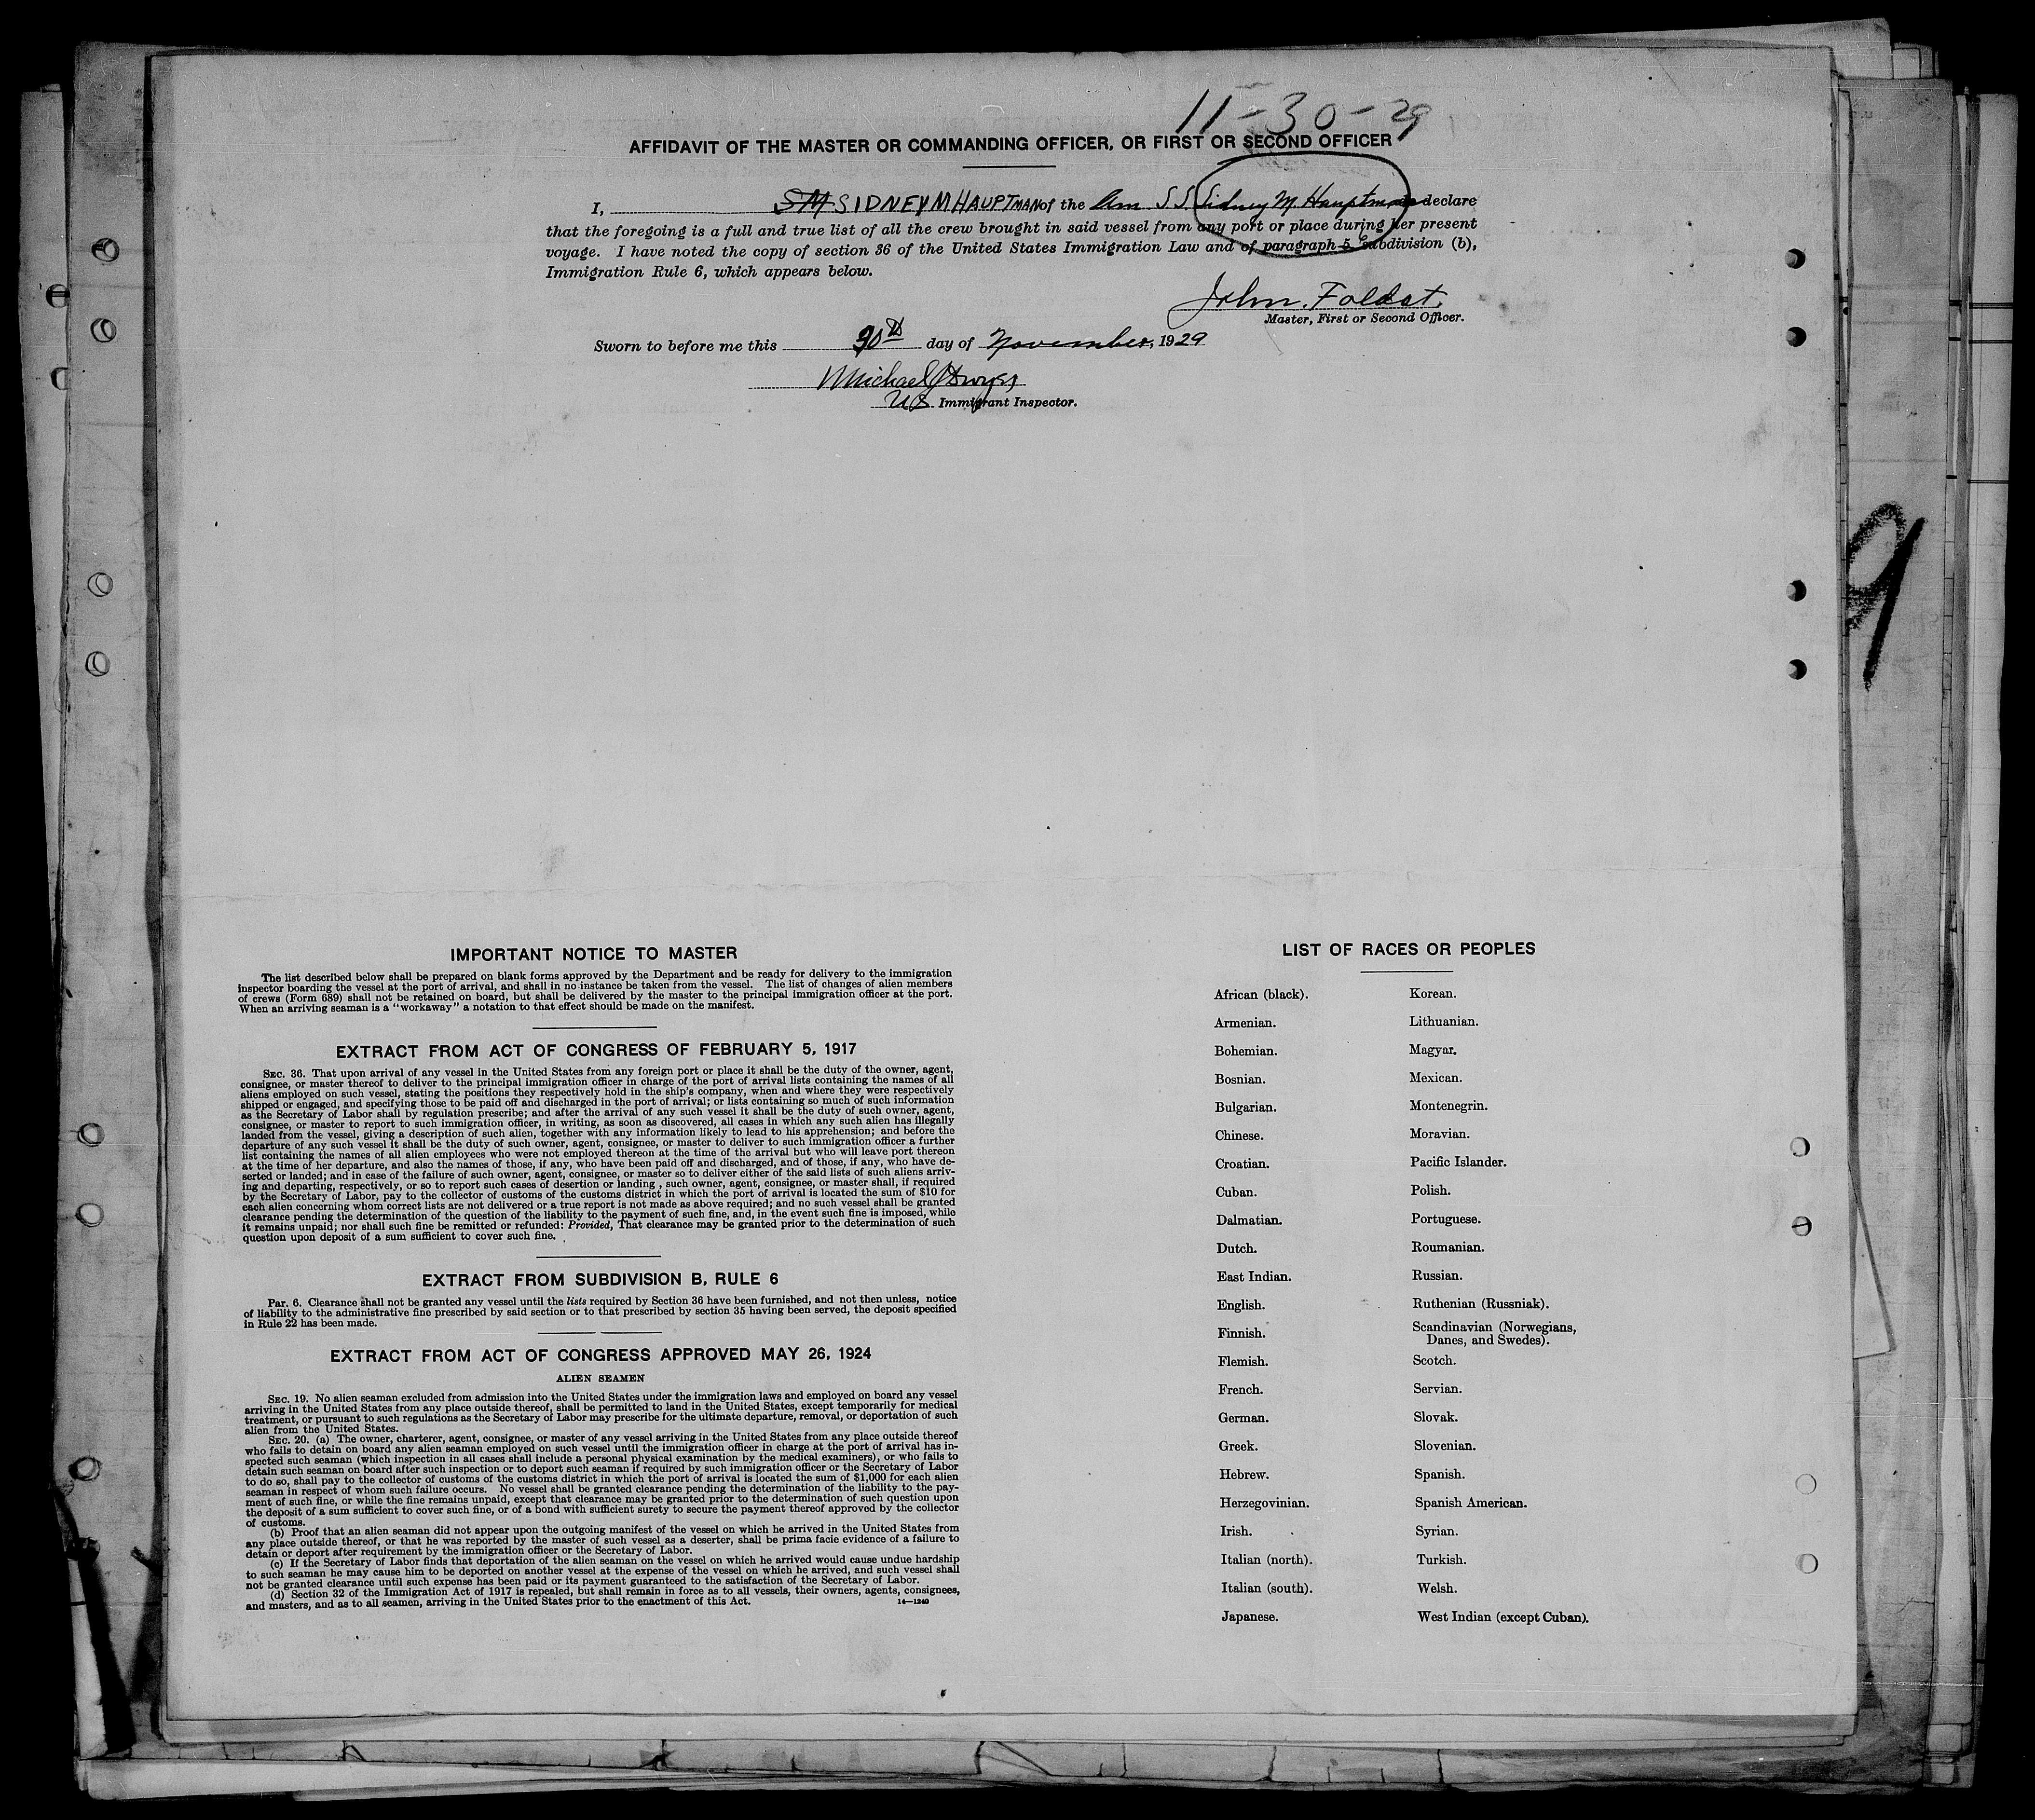 11-30-29
AFFIDAVIT OF THE MASTER OR COMMANDING OFFICER, OR FIRST OR SECOND OFFICER
I, SM SIDNEY M HAUPTMAN of the Am S S. Sidney M. Hauptman do declare
that the foregoing is a full and true list of all the crew brought in said vessel from any port or place during her present
voyage. I have noted the copy of section 36 of the United States Immigration Law and of paragraph 5 Subdivision (b),
Immigration Rule 6, which appears below.
John. Foldat.
Master, First or Second Officer.
Sworn to before me this 30th day of November, 1929
Michael
U.S. Immigrant Inspector.
9
IMPORTANT NOTICE TO MASTER
The list described below shall be prepared on blank forms approved by the Department and be ready for delivery to the immigration
inspector boarding the vessel at the port of arrival, and shall in no instance be taken from the vessel. The list of changes of alien members
of crews (Form 689) shall not be retained on board, but shall be delivered by the master to the principal immigration officer at the port.
When an arriving seaman is a "workaway" a notation to that effect should be made on the manifest.
EXTRACT FROM ACT OF CONGRESS OF FEBRUARY 5, 1917
SEC. 36. That upon arrival of any vessel in the United States from any foreign port or place it shall be the duty of the owner, agent,
consignee, or master thereof to deliver to the principal immigration officer in charge of the port of arrival lists containing the names of all
aliens employed on such vessel, stating the positions they respectively hold in the ship's company, when and where they were respectively
shipped or engaged, and specifying those to be paid off and discharged in the port of arrival; or lists containing so much of such information
as the Secretary of Labor shall by regulation prescribe; and after the arrival of any such vessel it shall be the duty of such owner, agent,
consignee, or master to report to such immigration officer, in writing, as soon as discovered, all cases in which any such alien has illegally
landed from the vessel, giving a description of such alien, together with any information likely to lead to his apprehension; and before the
departure of any such vessel it shall be the duty of such owner, agent, consignee, or master to deliver to such immigration officer a further
list containing the names of all alien employees who were not employed thereon at the time of the arrival but who will leave port thereon
at the time of her departure, and also the names of those, if any, who have been paid off and discharged, and of those, if any, who have de-
serted or landed; and in case of the failure of such owner, agent, consignee, or master so to deliver either of the said lists of such aliens arriv-
ing and departing, respectively, or so to report such cases of desertion or landing , such owner, agent, consignee, or master shall, if required
by the Secretary of Labor, pay to the collector of customs of the customs district in which the port of arrival is located the sum of $10 for
each alien concerning whom correct lists are not delivered or a true report is not made as above required; and no such vessel shall be granted
clearance pending the determination of the question of the liability to the payment of such fine, and, in the event such fine is imposed, while
it remains unpaid; nor shall such fine be remitted or refunded: Provided, That clearance may be granted prior to the determination of such
question upon deposit of a sum sufficient to cover such fine.
EXTRACT FROM SUBDIVISION B, RULE 6
Par. 6. Clearance shall not be granted any vessel until the lists required by Section 36 have been furnished, and not then unless, notice
of liability to the administrative fine prescribed by said section or to that prescribed by section 35 having been served, the deposit specified
in Rule 22 has been made.
EXTRACT FROM ACT OF CONGRESS APPROVED MAY 26, 1924
ALIEN SEAMEN
SEC. 19. No alien seaman excluded from admission into the United States under the immigration laws and employed on board any vessel
arriving in the United States from any place outside thereof, shall be permitted to land in the United States, except temporarily for medical
treatment, or pursuant to such regulations as the Secretary of Labor may prescribe for the ultimate departure, removal, or deportation of such
alien from the United States.
SEC. 20. (a) The owner, charterer, agent, consignee, or master of any vessel arriving in the United States from any place outside thereof
who fails to detain on board any alien seaman employed on such vessel until the immigration officer in charge at the port of arrival has in-
spected such seaman (which inspection in all cases shall include a personal physical examination by the medical examiners), or who fails to
detain such seaman on board after such inspection or to deport such seaman if required by such immigration officer or the Secretary of Labor
to do so, shall pay to the collector of customs of the customs district in which the port of arrival is located the sum of $1,000 for each alien
seaman in respect of whom such failure occurs. No vessel shall be granted clearance pending the determination of the liability to the pay-
ment of such fine, or while the fine remains unpaid, except that clearance may be granted prior to the determination of such question upon
the deposit of a sum sufficient to cover such fine, or of a bond with sufficient surety to secure the payment thereof approved by the collector
of customs.
(b) Proof that an alien seaman did not appear upon the outgoing manifest of the vessel on which he arrived in the United States from
any place outside thereof, or that he was reported by the master of such vessel as a deserter, shall be prima facie evidence of a failure to
detain or deport after requirement by the immigration officer or the Secretary of Labor.
(c) If the Secretary of Labor finds that deportation of the alien seaman on the vessel on which he arrived would cause undue hardship
to such seaman he may cause him to be deported on another vessel at the expense of the vessel on which he arrived, and such vessel shall
not be granted clearance until such expense has been paid or its payment guaranteed to the satisfaction of the Secretary of Labor.
(d) Section 32 of the Immigration Act of 1917 is repealed, but shall remain in force as to all vessels, their owners, agents, consignees,
and masters, and as to all seamen, arriving in the United States prior to the enactment of this Act.
14—1240
LIST OF RACES OR PEOPLES
African (black). Korean.
Armenian. Lithuanian.
Bohemian. Magyar.
Bosnian. Mexican.
Bulgarian. Montenegrin.
Chinese. Moravian.
Croatian. Pacific Islander.
Cuban. Polish.
Dalmatian. Portuguese.
Dutch. Roumanian.
East Indian. Russian.
English. Ruthenian (Russniak).
Finnish. Scandinavian (Norwegians,
Danes, and Swedes).
Flemish. Scotch.
French. Servian.
German. Slovak.
Greek. Slovenian.
Hebrew. Spanish.
Herzegovinian. Spanish American.
Irish. Syrian.
Italian (north). Turkish.
Italian (south). Welsh.
Japanese. West Indian (except Cuban).